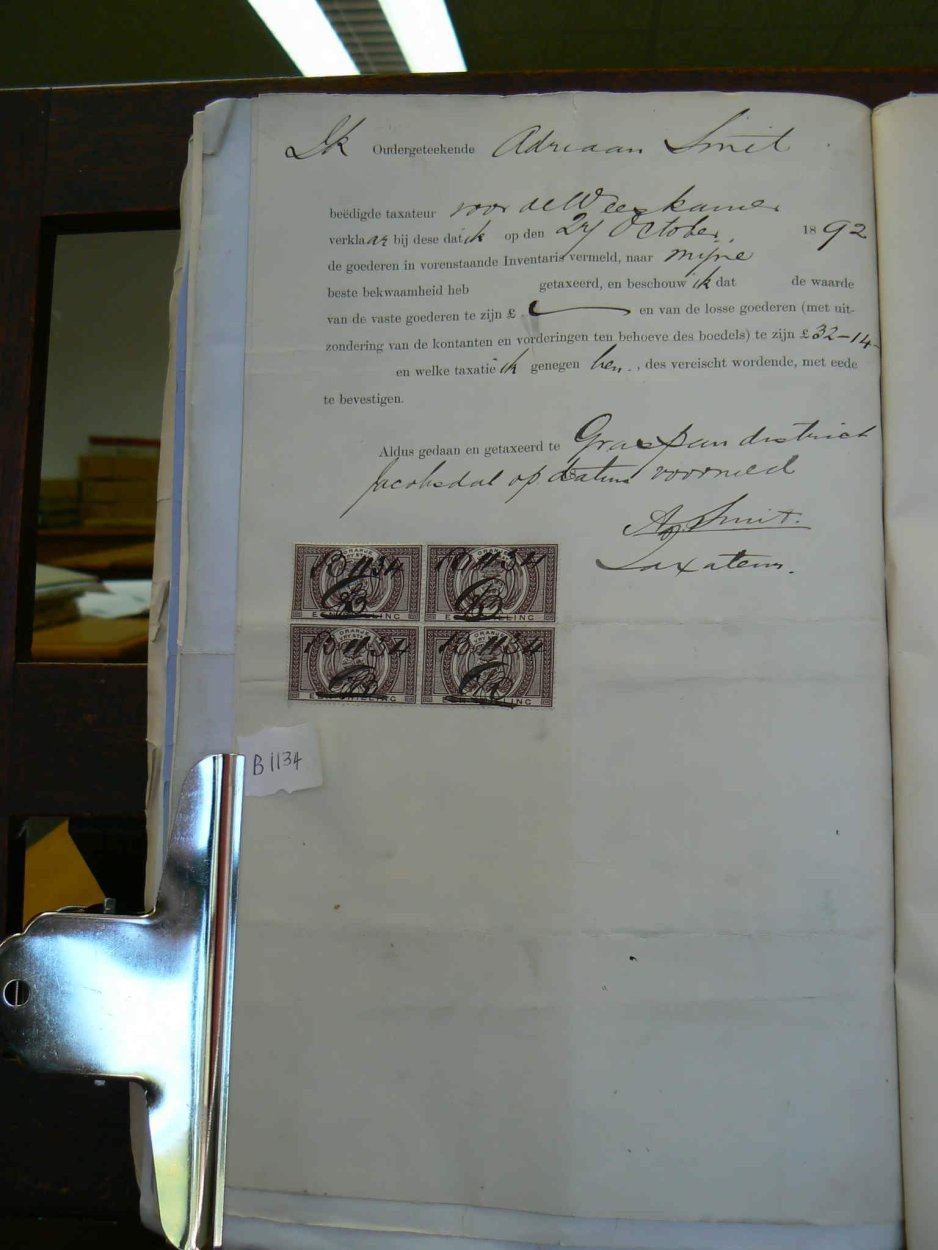 Ik Ondergeteekende Adriaan Smit
beëdigde taxateur voor de Weeskamer
verklaar bij dese dat ik op den 27 October 1892
de goederen in vorenstaande Inventaris vermeld, naar mijne
beste bekwaamheid heb getaxeerd, en beschouw ik dat de waarde
van de vaste goederen te zijn £ — en van de losse goederen (met uit-
zondering van de kontanten en vorderingen ten behoeve des boedels) te zijn £ 32-14-
en welke taxatie ik genegen ben, des vereischt wordende, met eede
te bevestigen.
Aldus gedaan en getaxeerd te Graspan district
Jacobsdal op datum voormeld
A Smit.
Taxateur.
ORANJE ORANJE
EEN SHILLING EEN SHILLING
ORANJE ORANJE
EEN SHILLING EEN SHILLING
B1134